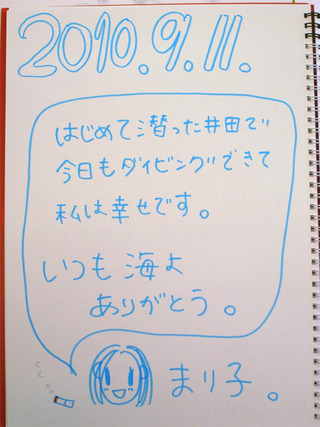 2010.9.11.
はじめて潜った井田で
今日もダイビングできて
私は幸せです。
いつも海よ
ありがとう。
まり子。